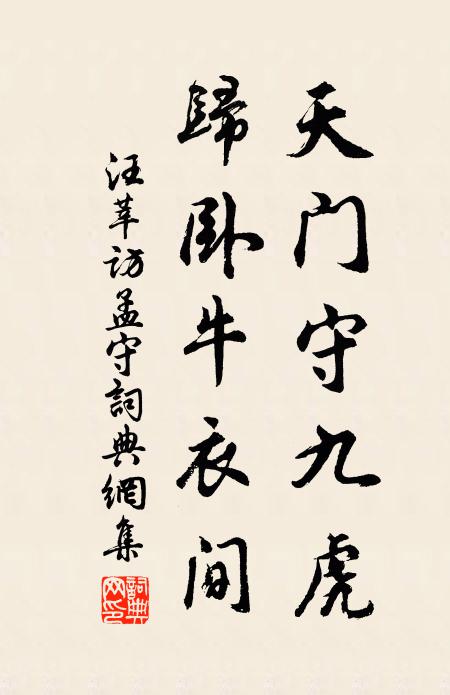 天门守九虎
歸卧牛衣间
汪莘访孟守詞典網集
詞典网印